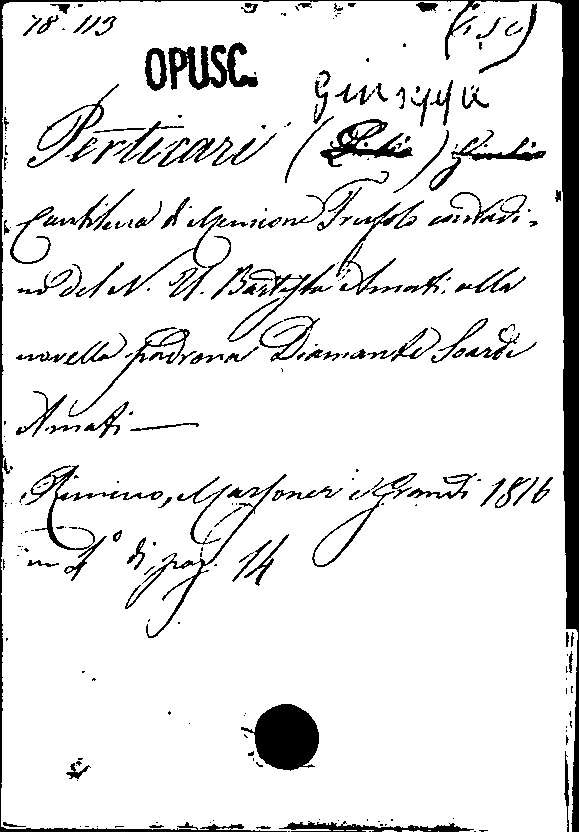 78. 113
OPUSC.
Giuseppe
Perticari (Giulio) Giulio
Cantilena di Menicone Frufolo contadi-
no del N. U. Battista Amati alla
novella padrona Diamante Soardi
Amati —
Rimino, Marsoner e Grandi 1816
in 4° di pag. 14